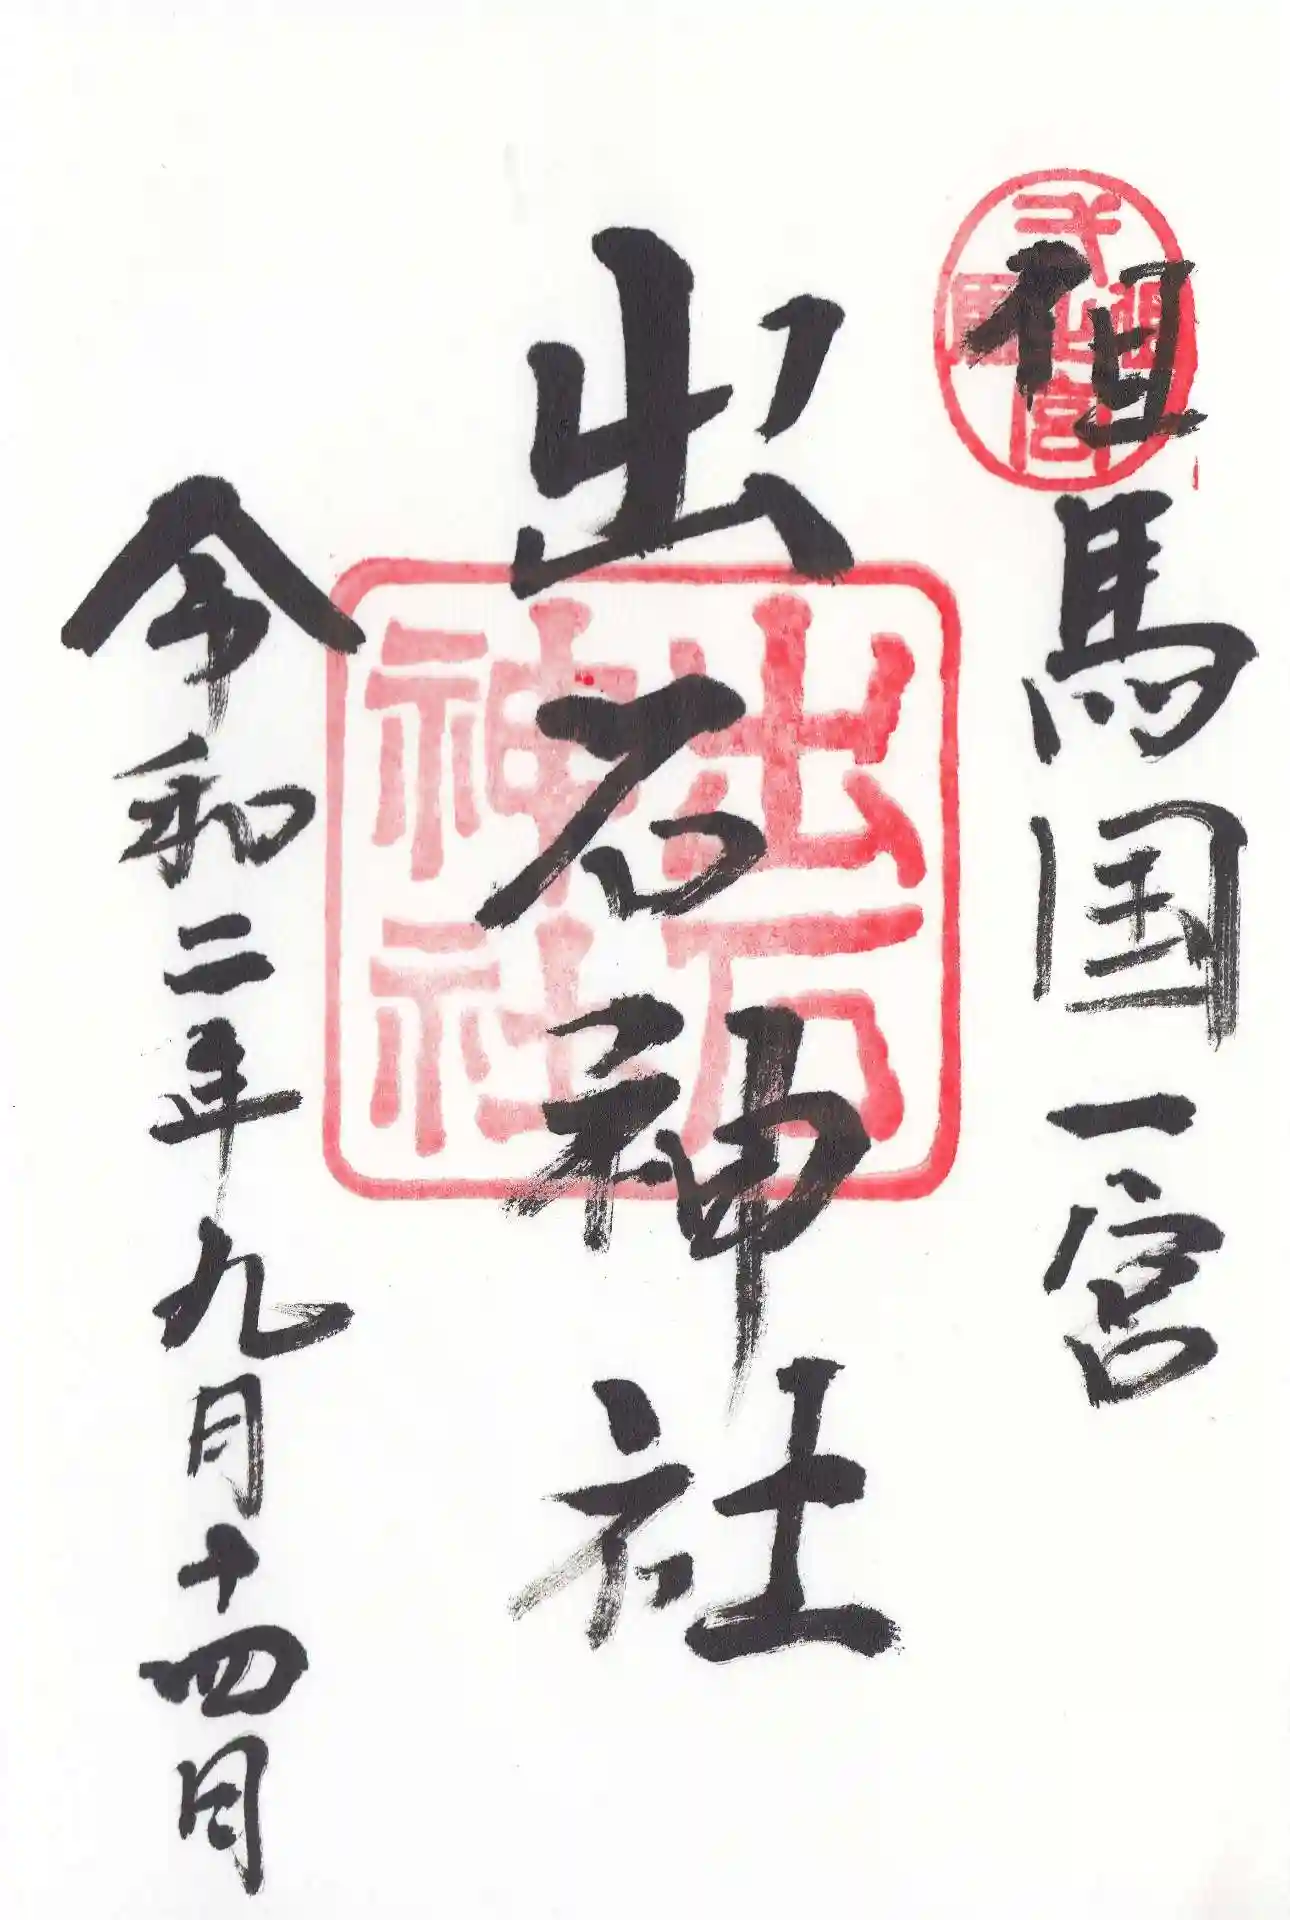 但馬国一宮
出石神社
令和二年九月十四日
出石
神社